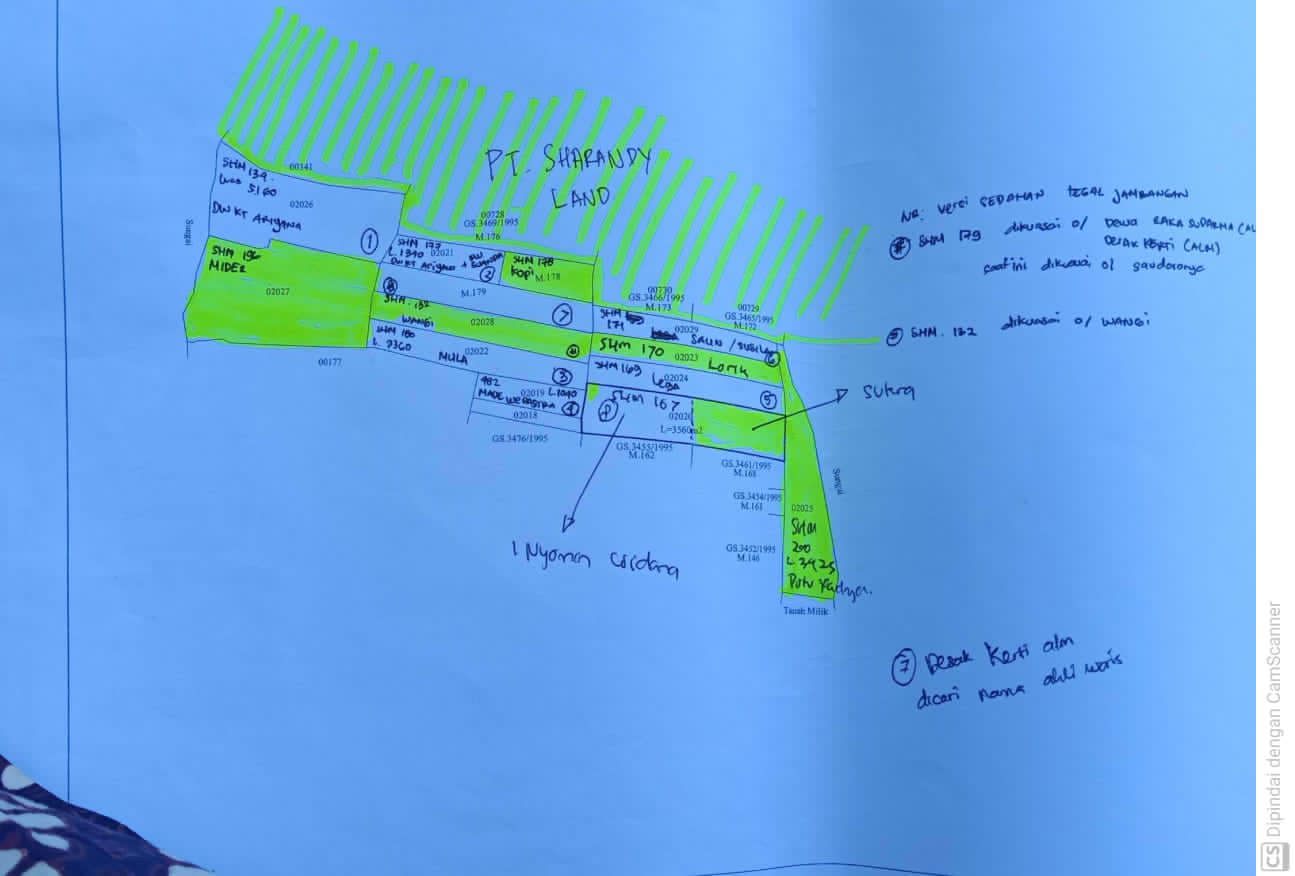 PT. SHARANDY
LAND
00341
SHM 139.
Luas 5160
02026
DW KT ARIYANA
1
Sungai
00728
GS.3469/1995
M.176
SHM 177
L.1340
02021
DW KT Ariyana +
2
SHM 178
Kopi
M.178
NB: versi SEDAHAN TEGAL JAMBANGAN
SHM 179 dikuasai o/ DEWA RAKA SUDARMA (AL
DESAK KERTI (ALM)
saat ini dikuasai o/ saudaranya
SHM 196
MIDER
02027
M.179
7
SHM. 132
WANGI
02028
00730
GS.3466/1995
M.173
00729
GS.3465/1995
M.172
SHM
171
02029
SALIN /
6
SHM. 132 dikuasai o/ WANGI
SHM 180
L 7360
02022
MULA
3
00177
SHM 170
02023
SHM 169
02024
Lega
5
482
02019
MADE WERASTRA
4
02018
GS.3476/1995
SHM 167
02020
L=3560m2
GS.3455/1995
M.162
Sukra
I Nyoman
GS.3461/1995
M.168
GS.3454/1995
M.161
GS.3452/1995
M.146
Sungai
02025
SHM
200
L 3425
Putu
Tanah Milik
7 Desak Kerti alm
dicari nama ahli waris
CS Dipindai dengan CamScanner